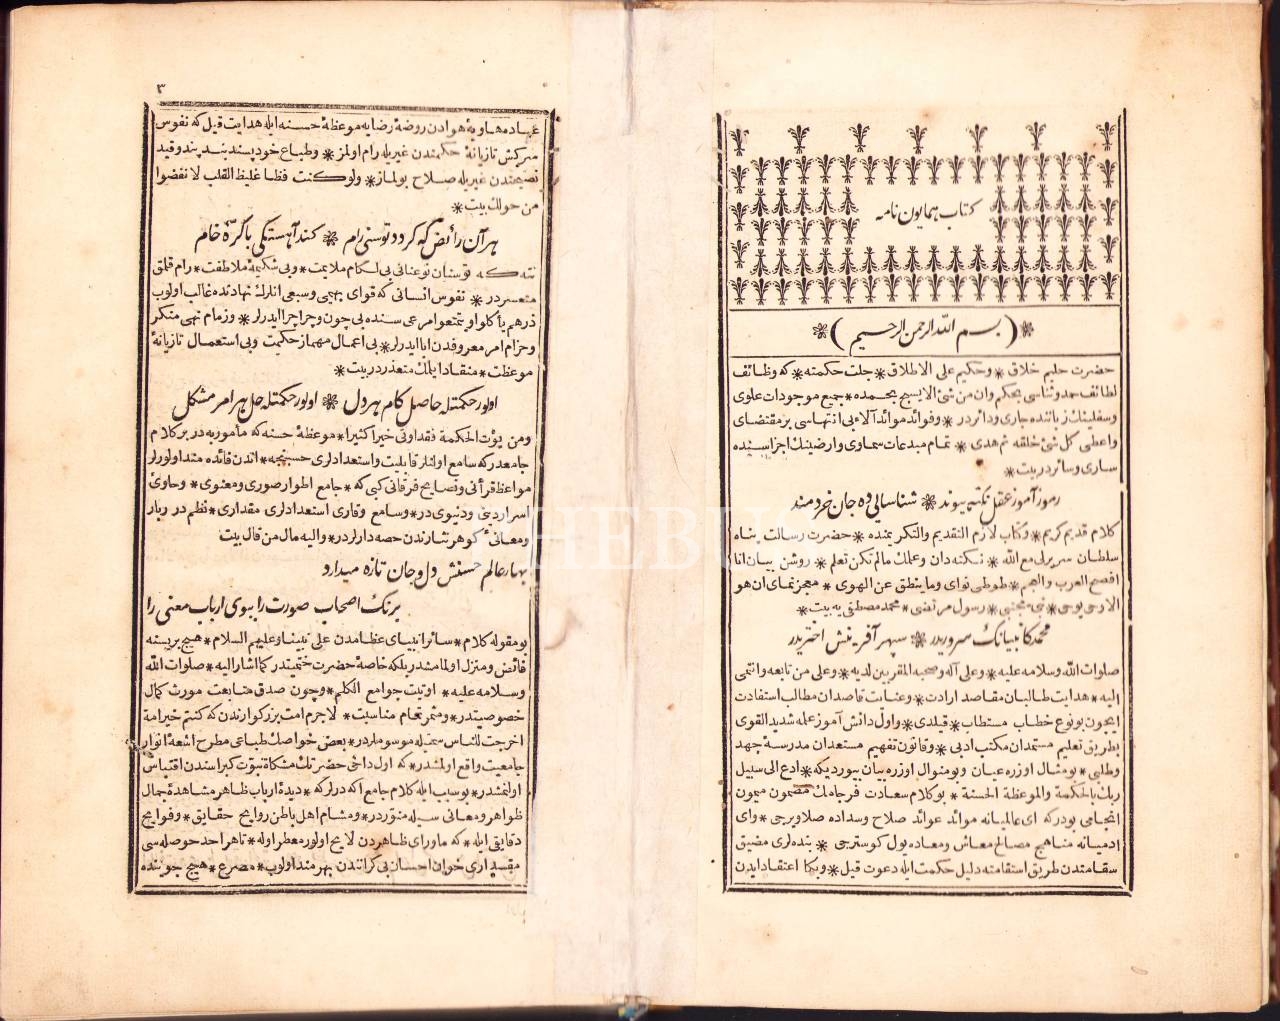 كتاب همايون نامه
بسم الله الرحمن الرحيم
حضرت حليم خلاق * وحكيم على الاطلاق * جلت حكمته * كه وظائف
لطائف حمد وثناسى بحكم وان من شئ الا يسبح بحمده * جميع موجودات علوى
وسفلينك زباننده جارى ودائر در * وفوائد موائد آلاء بى انتهاسى بر مقتضاى
واعطى كل شئ خلقه ثم هدى * تمام مبدعات سماوى وارضينك اجزاسنده
سارى وسائر در بيت *
رموز آموز عقل نكته پيوند * شناسايى ده جان خردمند
كلام قديم كريم * وكتاب لازم التقديم والتكريمنده * حضرت رسالت پناه
سلطان سرير لى مع الله * نكته دان وعلمك مالم تكن تعلم * روشن بيان انا
افصح العرب والعجم * طوطى نواى وما ينطق عن الهوى * معجز نماى ان هو
الا وحى يوحى * نبى مجتبى * رسول مرتضى * محمد مصطفى يه بيت *
محمد كانبيانك سروريدر * سپهر آفرينش اختريدر
صلوات الله وسلامه عليه * وعلى آله وصحبه المقربين لديه * وعلى من تابعه وانتمى
اليه * هدايت طالبان مقاصد ارادت * وعنايت قاصدان مطالب استفادت
ايچون بو نوع خطاب مستطاب * قيلدى * واول دانش آموز علمه شديد القوى
بطريق تعليم مستمدان مكتب ادبى * وقانون تفهيم مستعدان مدرسهٔ جهد
وطلبى * بو مثال اوزره عيان وبو منوال اوزره بيان بيورديكه * ادع الى سبيل
ربك بالحكمة والموعظة الحسنة * بو كلام سعادت فرجامك مضمون ميمون
انجامى بودر كه اى عالميانه موائد عوائد صلاح وسداده صلا ويرجى * واى
آدميانه مناهج مصالح معاش ومعاده يول كوسترجى * بنده لرى مضيق
سقامتدن طريق استقامته دليل حكمت ايله دعوت قيل * وبكا اعتقاد ايدن
٣
عباد مهاويهٔ هوادن روضهٔ رضايه موعظهٔ حسنه ايله هدايت قيل كه نفوس
سركش تازيانهٔ حكمتدن غيريله رام اولمز * وطباع خود پسند بند پند وقيد
نصيحتدن غيريله صلاح بولماز * ولو كنت فظا غليظ القلب لانفضوا
من حولك بيت *
هر آن رائض كه كردد توسنى رام * كند آهستكى با كرهٔ خام
نته كه توسنان نو عنانى بى لكام ملايمت * وبى شكيمهٔ ملاطفت * رام قيلمق
متعسر در * نفوس انسانى كه قواى بهيمى وسبعى انلرك نهادنده غالب اولوب
ذرهم يأكلوا ويتمتعوا مرعى سنده بى چون وچرا چرا ايدرلر * وزمام نهى منكر
وحزام امر معروفدن ابا ايدرلر * بى اعمال مهماز حكمت وبى استعمال تازيانهٔ
موعظت * منقاد ايلمك متعذر در بيت *
اولور حكمتله حاصل كام هر دل * اولور حكمتله حل هر امر مشكل
ومن يؤت الحكمة فقد اوتى خيرا كثيرا * موعظهٔ حسنه كه مأمور به در بر كلام
جامعدر كه سامع اولنلر قابليت واستعدادلرى حسبنجه * اندن فائده مند اولورلر
مواعظ قرآنى ونصايح فرقانى كبى كه * جامع اطوار صورى ومعنوى * وحاوئ
اسرار دينى ودنيوى در * وسامع وقارى استعدادلرى مقدارى * نظم درر بار
ومعانئ كوهر نثارندن حصه دارلر در * واليه مال من قال بيت
بهار عالم حسنش دل وجان تازه ميدارد
برنك اصحاب صورت را ببوى ارباب معنى را
بو مقوله كلام * سائر انبياى عظامدن على نبينا وعليهم السلام * هيچ بريسنه
فائض ومنزل اولمامشدر بلكه خاصهٔ حضرت ختميتدر كما اشار اليه * صلوات الله
وسلامه عليه * اوتيت جوامع الكلم * وچون صدق متابعت مورث كمال
خصوصيتدر * ومثمر تمام مناسبت * لاجرم امت بزركوارندن كه كنتم خير امة
اخرجت للناس سمتيله موسوملردر * بعض خواصك طباعى مطرح اشعهٔ انوار
جامعيت واقع اولمشدر * كه اول داخى حضرتك مشكاة نبوت كبراسندن اقتباس
اولنمشدر * بو سبب ايله كلام جامع اكه ديرلر كه * ديدهٔ ارباب ظاهر مشاهدهٔ جمال
ظواهر ومعانى سيله منور در * ومشام اهل باطن روايح حقايق * وفوايح
دقايق ايله * كه ماوراى ظاهردن لايح اولور معطر اوله * تا هر احد حوصله سى
مقدارى خوان احسان بى كرانندن بهره مند اولوب * مصرع * هيچ جوينده